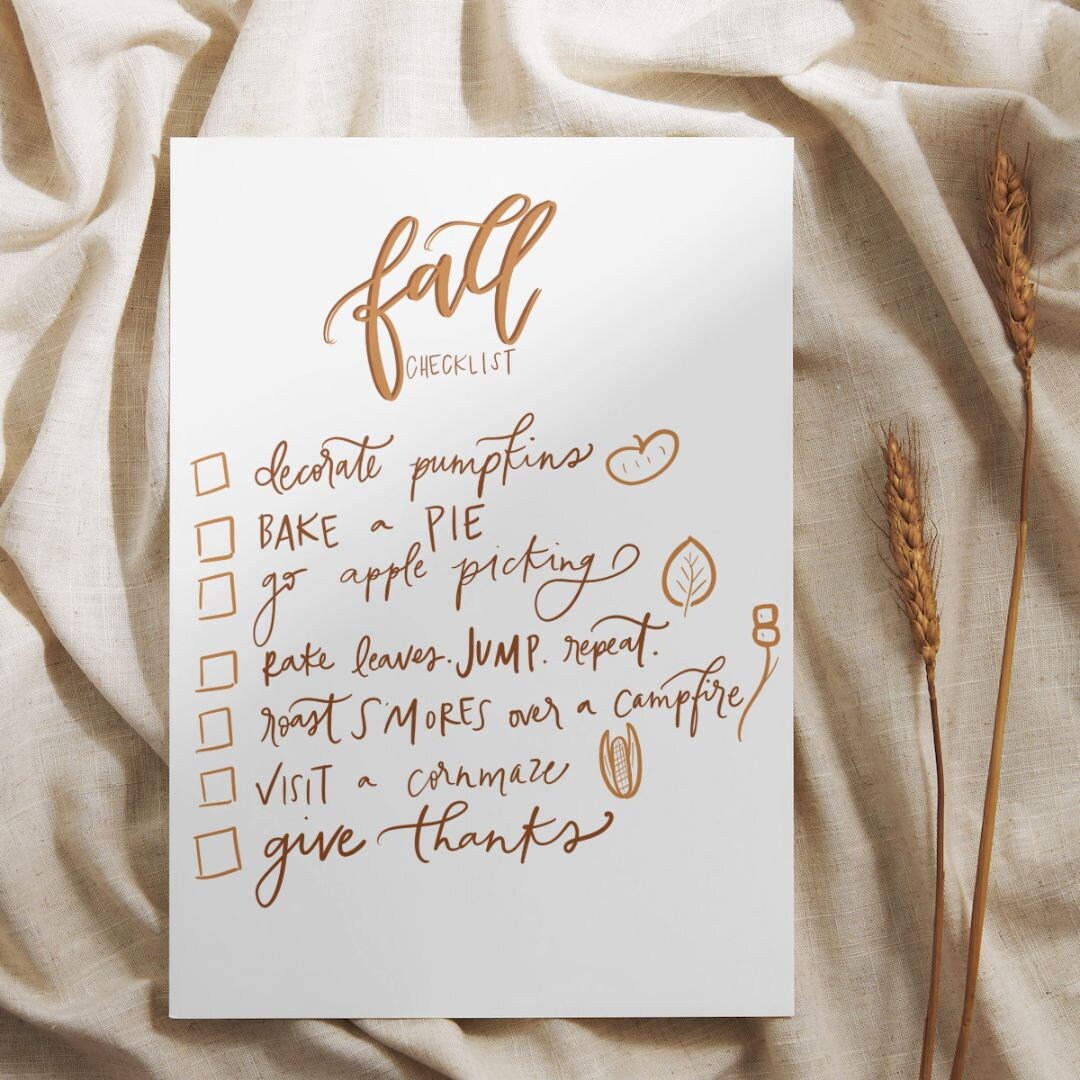 fall
CHECKLIST
decorate pumpkins
BAKE a PIE
go apple picking
Rake leaves. JUMP. repeat.
roast S'MORES over a campfire
VISIT a cornmaze
give thanks